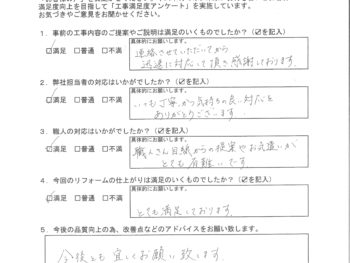 満足度向上を目指して「工事満足度アンケート」を実施しています。
お気づきやご意見をお聞かせください。
1．事前の工事内容のご提案やご説明は満足のいくものでしたか？（☑を記入）
☑満足 □普通 □不満
具体的にお願いします。
連絡させていただいてから
迅速に対応して頂き感謝しております。
2．弊社担当者の対応はいかがでしたか？（☑を記入）
☑満足 □普通 □不満
具体的にお願いします。
いつも丁寧かつ気持ちの良い対応を
ありがとうございます。
3．職人の対応はいかがでしたか？（☑を記入）
☑満足 □普通 □不満
具体的にお願いします。
職人さん目線からの提案やお気遣いが
とても有難いです。
4．今回のリフォームの仕上がりは満足のいくものでしたか？（☑を記入）
☑満足 □普通 □不満
具体的にお願いします。
とても満足しております。
5．今後の品質向上の為、改善点などのアドバイスをお願い致します。
今後とも宜しくお願い致します。